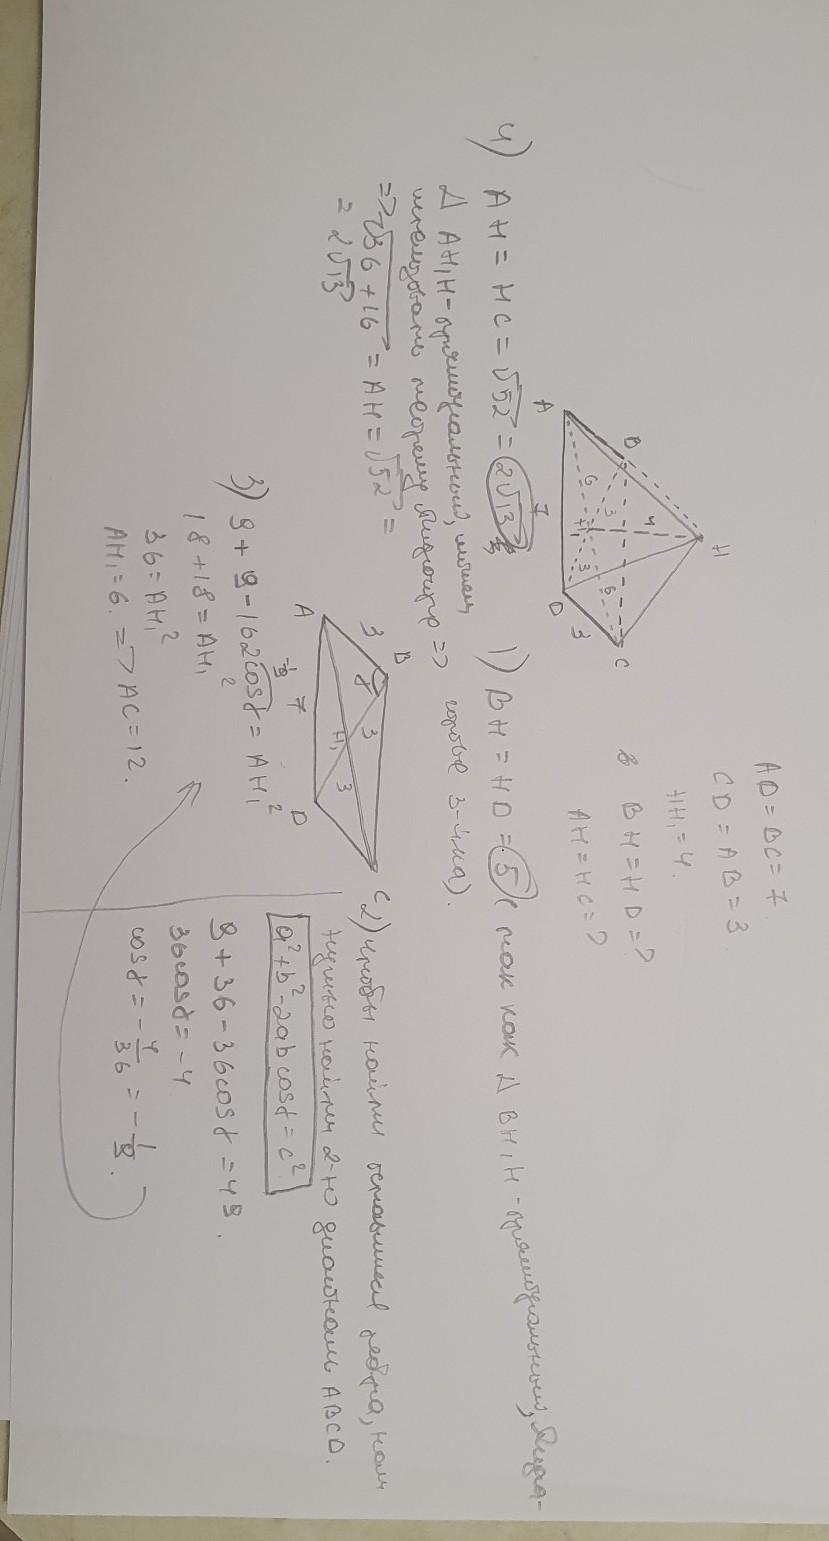 AD = BC = 7
CD = AB = 3
HH₁ = 4.
BH = HD = ?
AH = HC = ?
H
B
4
A
6
3
H₁
3
6
7
D
3
C
1) BH = HD = 5 (так как Δ BH₁H - прямоугольный,
говые 3-йка).
2) чтобы найти оставшиеся ребра, нам
нужно найти 2-ю диагональ ABCD.
a² + b² - 2ab cos γ = c²
9 + 36 - 36 cos γ = 49.
36 cos γ = -4
cos γ = -4/36 = -1/9.
B
3
γ
3
A
H₁
3
7
D
C
3) 9 + 9 - 162 cos γ = AH₁²
-1/9
18 + 18 = AH₁²
36 = AH₁²
AH₁ = 6. => AC = 12.
4) AH = HC = √52 = 2√13
Δ AH₁H - прямоугольный, можем
использовать теорему Пифагора =>
=> √36 + 16 = AH = √52 =
= 2√13